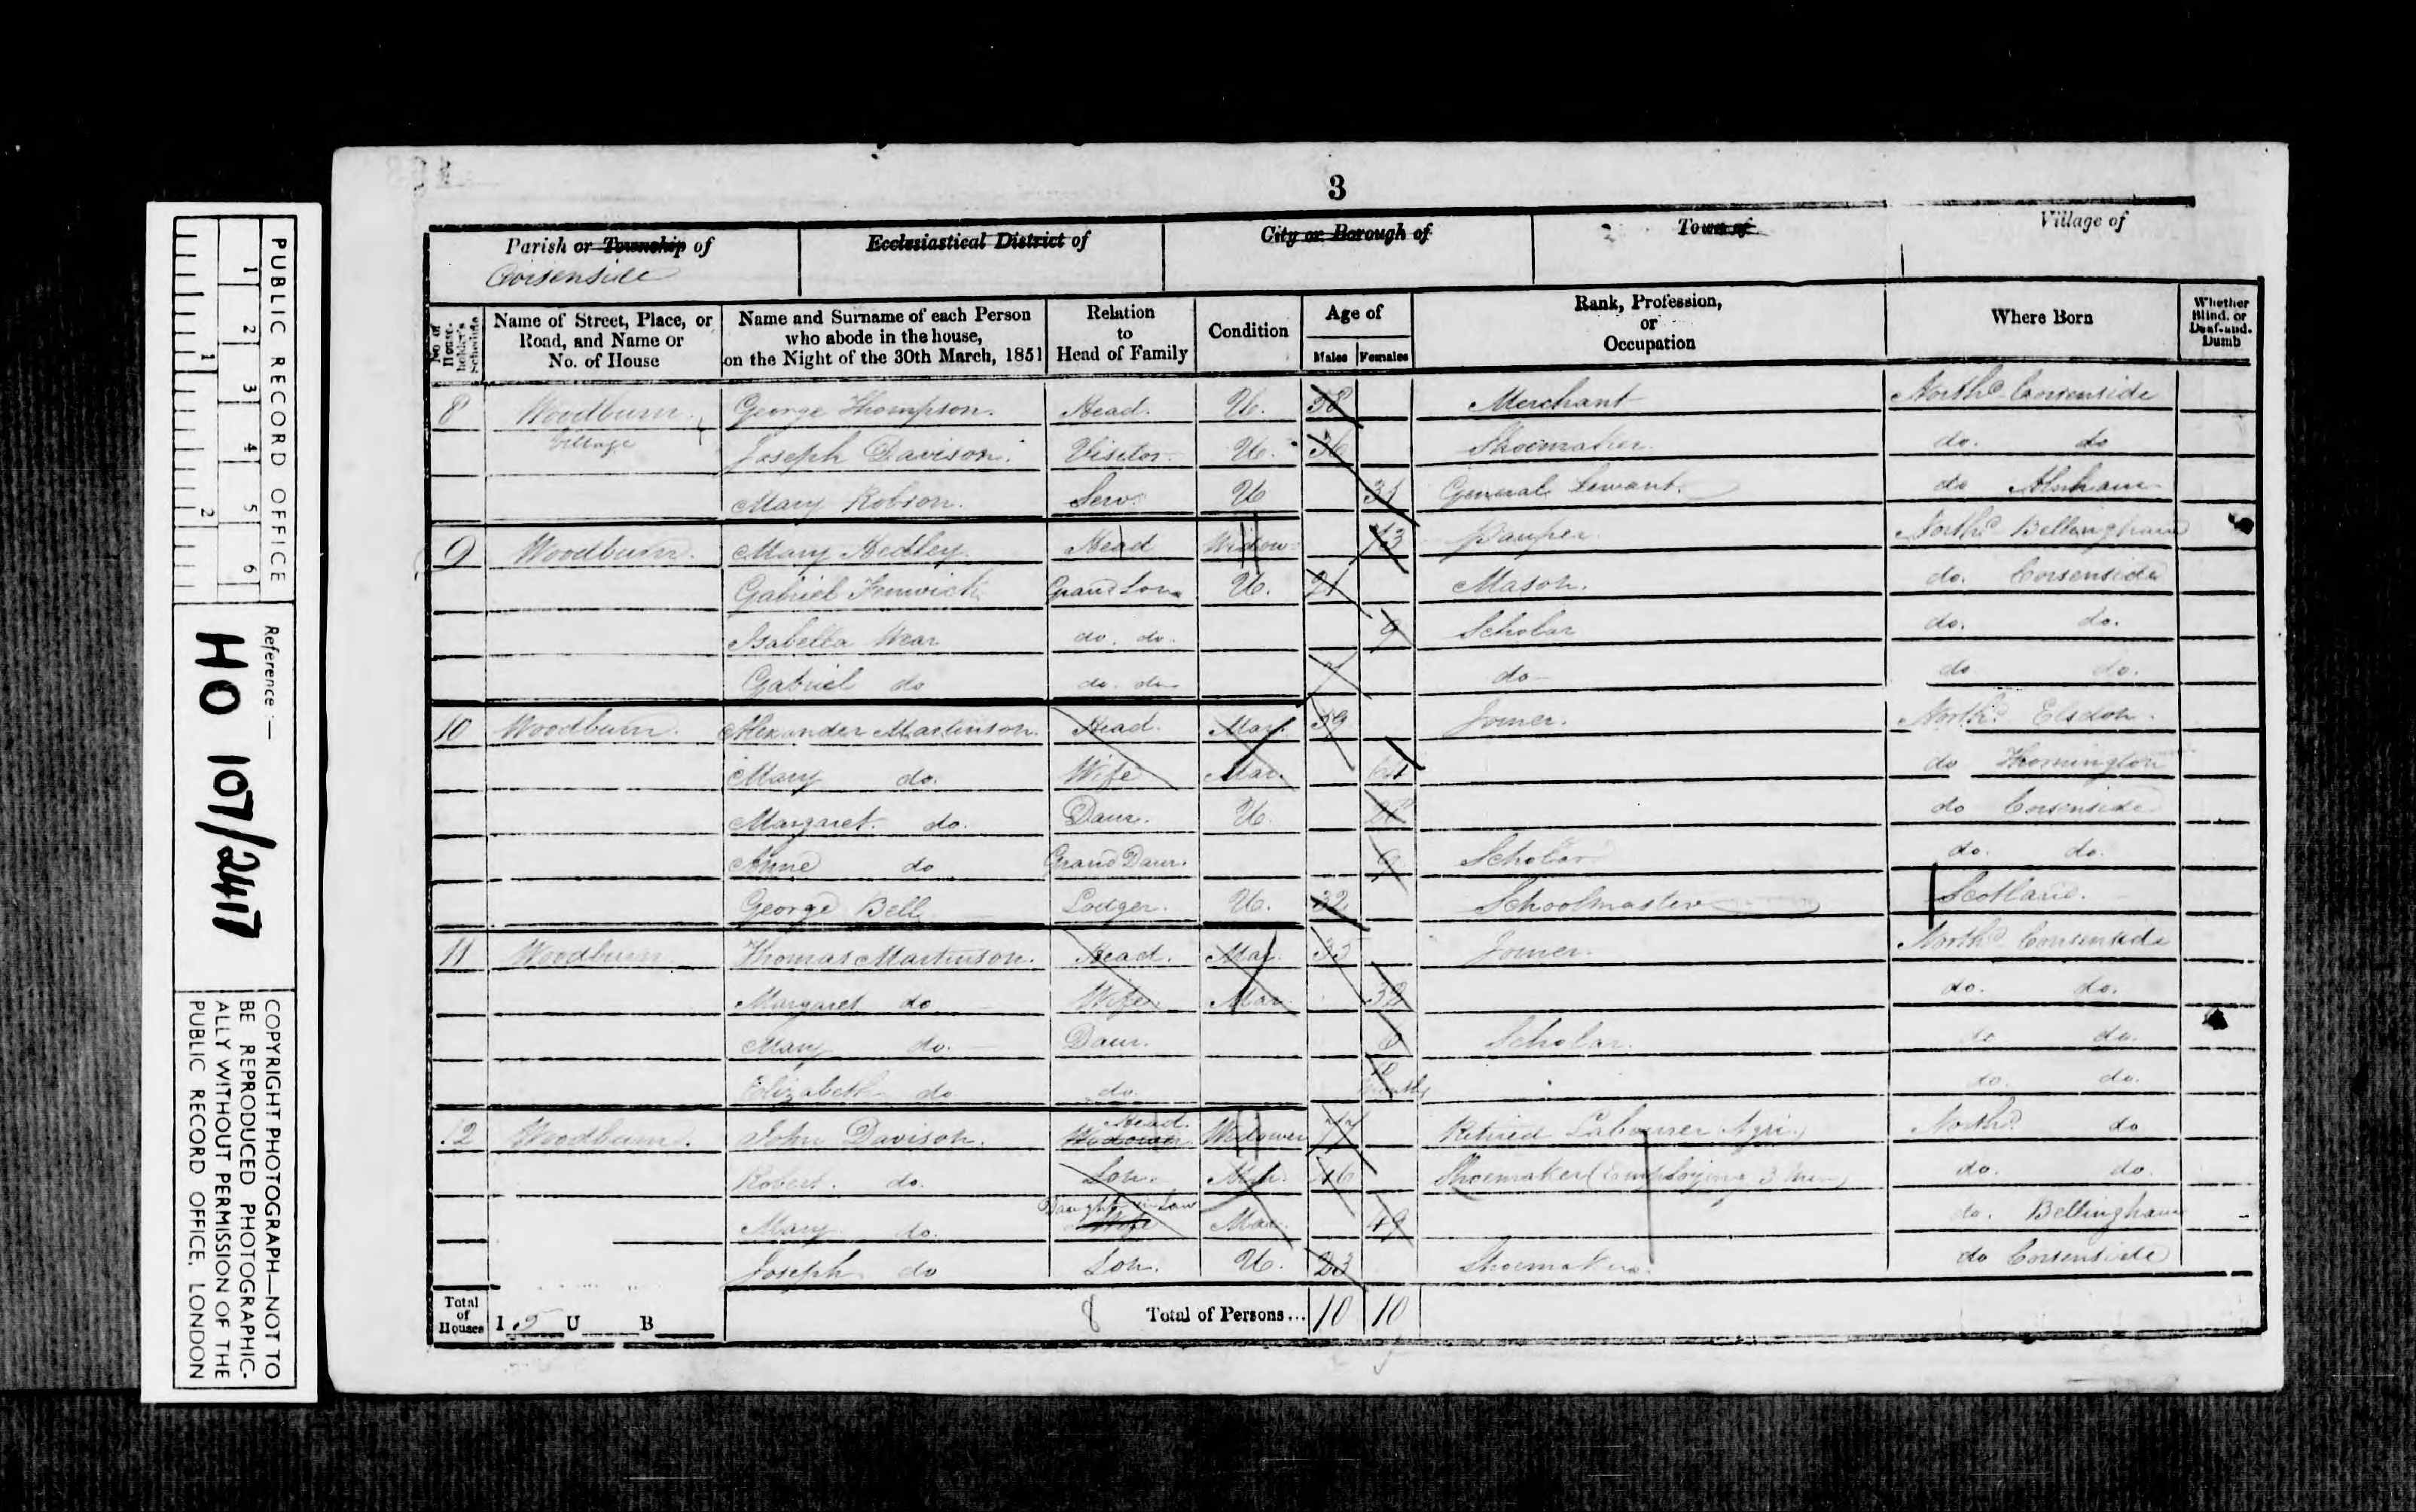 3
Parish or Township of
Ecclesiastical District of
City or Borough of
Town of
Village of
Corsenside
No. of House-holder's Schedule
Name of Street, Place, or Road, and Name or No. of House
Name and Surname of each Person who abode in the house, on the Night of the 30th March, 1851
Relation to Head of Family
Condition
Age of
Males
Females
Rank, Profession, or Occupation
Where Born
Whether Blind, or Deaf-and-Dumb
8 Woodburn George Thompson. Head. U. 38 Merchant North.d Corsenside
Village Joseph Davison. Visitor U. 36 Shoemaker do. do
Mary Robson. Serv. U General Servant. do
9 Woodburn. Mary Hedley. Head Widow 73 Pauper North.d Bellingham
Gabriel Fenwick Grand Son U. 21 Mason. do. Corsenside
Isabella Wear do. do. 9 Scholar do. do.
Gabriel do do. do 7 do do do.
10 Woodburn. Alexander Martinson. Head. Mar. 59 Joiner. North.d Elsdon.
Mary do. Wife Mar. do Thornington
Margaret. do. Daur. U. 28 do Corsenside
Anne do Grand Daur. 9 Scholar do. do.
George Bell Lodger. U. 32 Schoolmaster Scotland.
11 Woodburn Thomas Martinson. Head. Mar. 33 Joiner. North.d Corsenside
Margaret do Wife. Mar. 32 do. do.
Mary do. Daur. Scholar. do do.
Elizabeth do do. Months do. do.
12 Woodburn. John Davison. Widower Head. Widower 77 Retired Labourer Agri. North.d do
Robert. do. Son. Mar. 46 Shoemaker (Employing 3 Men) do. do.
Mary do. Wife Daughter in Law Mar. 49 do. Bellingham
Joseph do Son. U. 23 Shoemaker. do Corsenside
Total of Houses I 5 U B
8 Total of Persons... 10 10
PUBLIC RECORD OFFICE
1 2 3 4 5 6
1 2
Reference :—
HO 107/2417
COPYRIGHT PHOTOGRAPH—NOT TO
BE REPRODUCED PHOTOGRAPHIC-
ALLY WITHOUT PERMISSION OF THE
PUBLIC RECORD OFFICE, LONDON